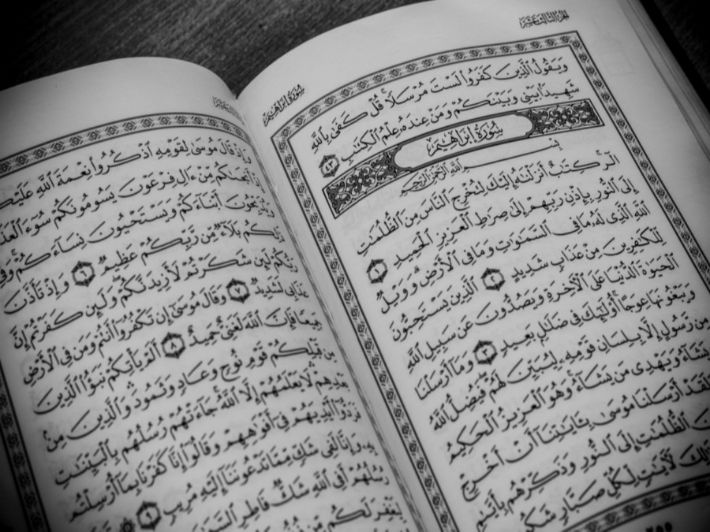 الجزء الثالث عشر
سورة إبراهيم
وَيَقُولُ الَّذِينَ كَفَرُوا لَسْتَ مُرْسَلًا قُلْ كَفَىٰ بِاللَّهِ
شَهِيدًا بَيْنِي وَبَيْنَكُمْ وَمَنْ عِندَهُ عِلْمُ الْكِتَٰبِ ٤٣
سُورَةُ إِبْرَاهِيمَ
بِسْمِ اللَّهِ الرَّحْمَٰنِ الرَّحِيمِ
الٓر كِتَٰبٌ أَنزَلْنَٰهُ إِلَيْكَ لِتُخْرِجَ النَّاسَ مِنَ الظُّلُمَٰتِ
إِلَى النُّورِ بِإِذْنِ رَبِّهِمْ إِلَىٰ صِرَٰطِ الْعَزِيزِ الْحَمِيدِ ١
اللَّهِ الَّذِي لَهُ مَا فِي السَّمَٰوَٰتِ وَمَا فِي الْأَرْضِ وَوَيْلٌ
لِّلْكَٰفِرِينَ مِنْ عَذَابٍ شَدِيدٍ ٢ الَّذِينَ يَسْتَحِبُّونَ
الْحَيَوٰةَ الدُّنْيَا عَلَى الْآخِرَةِ وَيَصُدُّونَ عَن سَبِيلِ اللَّهِ
وَيَبْغُونَهَا عِوَجًا أُولَٰئِكَ فِي ضَلَٰلٍ بَعِيدٍ ٣ وَمَا أَرْسَلْنَا
مِن رَّسُولٍ إِلَّا بِلِسَانِ قَوْمِهِ لِيُبَيِّنَ لَهُمْ فَيُضِلُّ اللَّهُ
يَشَاءُ وَيَهْدِي مَن يَشَاءُ وَهُوَ الْعَزِيزُ الْحَكِيمُ
أَرْسَلْنَا مُوسَىٰ بِـَٔايَٰتِنَا أَنْ أَخْرِجْ
الظُّلُمَٰتِ إِلَى النُّورِ وَذَكِّرْهُم بِأَيَّىٰمِ
لَآيَٰتٍ لِّكُلِّ صَبَّارٍ شَكُورٍ
سورة إبراهيم
وَإِذْ قَالَ مُوسَىٰ لِقَوْمِهِ اذْكُرُوا نِعْمَةَ اللَّهِ عَلَيْكُمْ
أَنجَىٰكُم مِّنْ آلِ فِرْعَوْنَ يَسُومُونَكُمْ سُوءَ الْعَذَابِ
وَيُذَبِّحُونَ أَبْنَاءَكُمْ وَيَسْتَحْيُونَ نِسَاءَكُمْ وَفِي
بَلَاءٌ مِّن رَّبِّكُمْ عَظِيمٌ ٦ وَإِذْ تَأَذَّنَ
رَبُّكُمْ لَئِن شَكَرْتُمْ لَأَزِيدَنَّكُمْ وَلَئِن كَفَرْتُمْ إِنَّ
عَذَابِي لَشَدِيدٌ ٧ وَقَالَ مُوسَىٰ إِن تَكْفُرُوا أَنتُمْ وَمَن فِي الْأَرْضِ
جَمِيعًا فَإِنَّ اللَّهَ لَغَنِيٌّ حَمِيدٌ ٨ أَلَمْ يَأْتِكُمْ نَبَؤُا الَّذِينَ
مِن قَبْلِكُمْ قَوْمِ نُوحٍ وَعَادٍ وَثَمُودَ وَالَّذِينَ مِن
بَعْدِهِمْ لَا يَعْلَمُهُمْ إِلَّا اللَّهُ جَاءَتْهُمْ رُسُلُهُم بِالْبَيِّنَٰتِ
فَرَدُّوا أَيْدِيَهُمْ فِي أَفْوَٰهِهِمْ وَقَالُوا إِنَّا كَفَرْنَا بِمَا أُرْسِلْتُم
بِهِ وَإِنَّا لَفِي شَكٍّ مِّمَّا تَدْعُونَنَا إِلَيْهِ مُرِيبٍ ٩
رُسُلُهُمْ أَفِي اللَّهِ شَكٌّ فَاطِرِ السَّمَٰوَٰتِ
لِيَغْفِرَ لَكُم مِّن